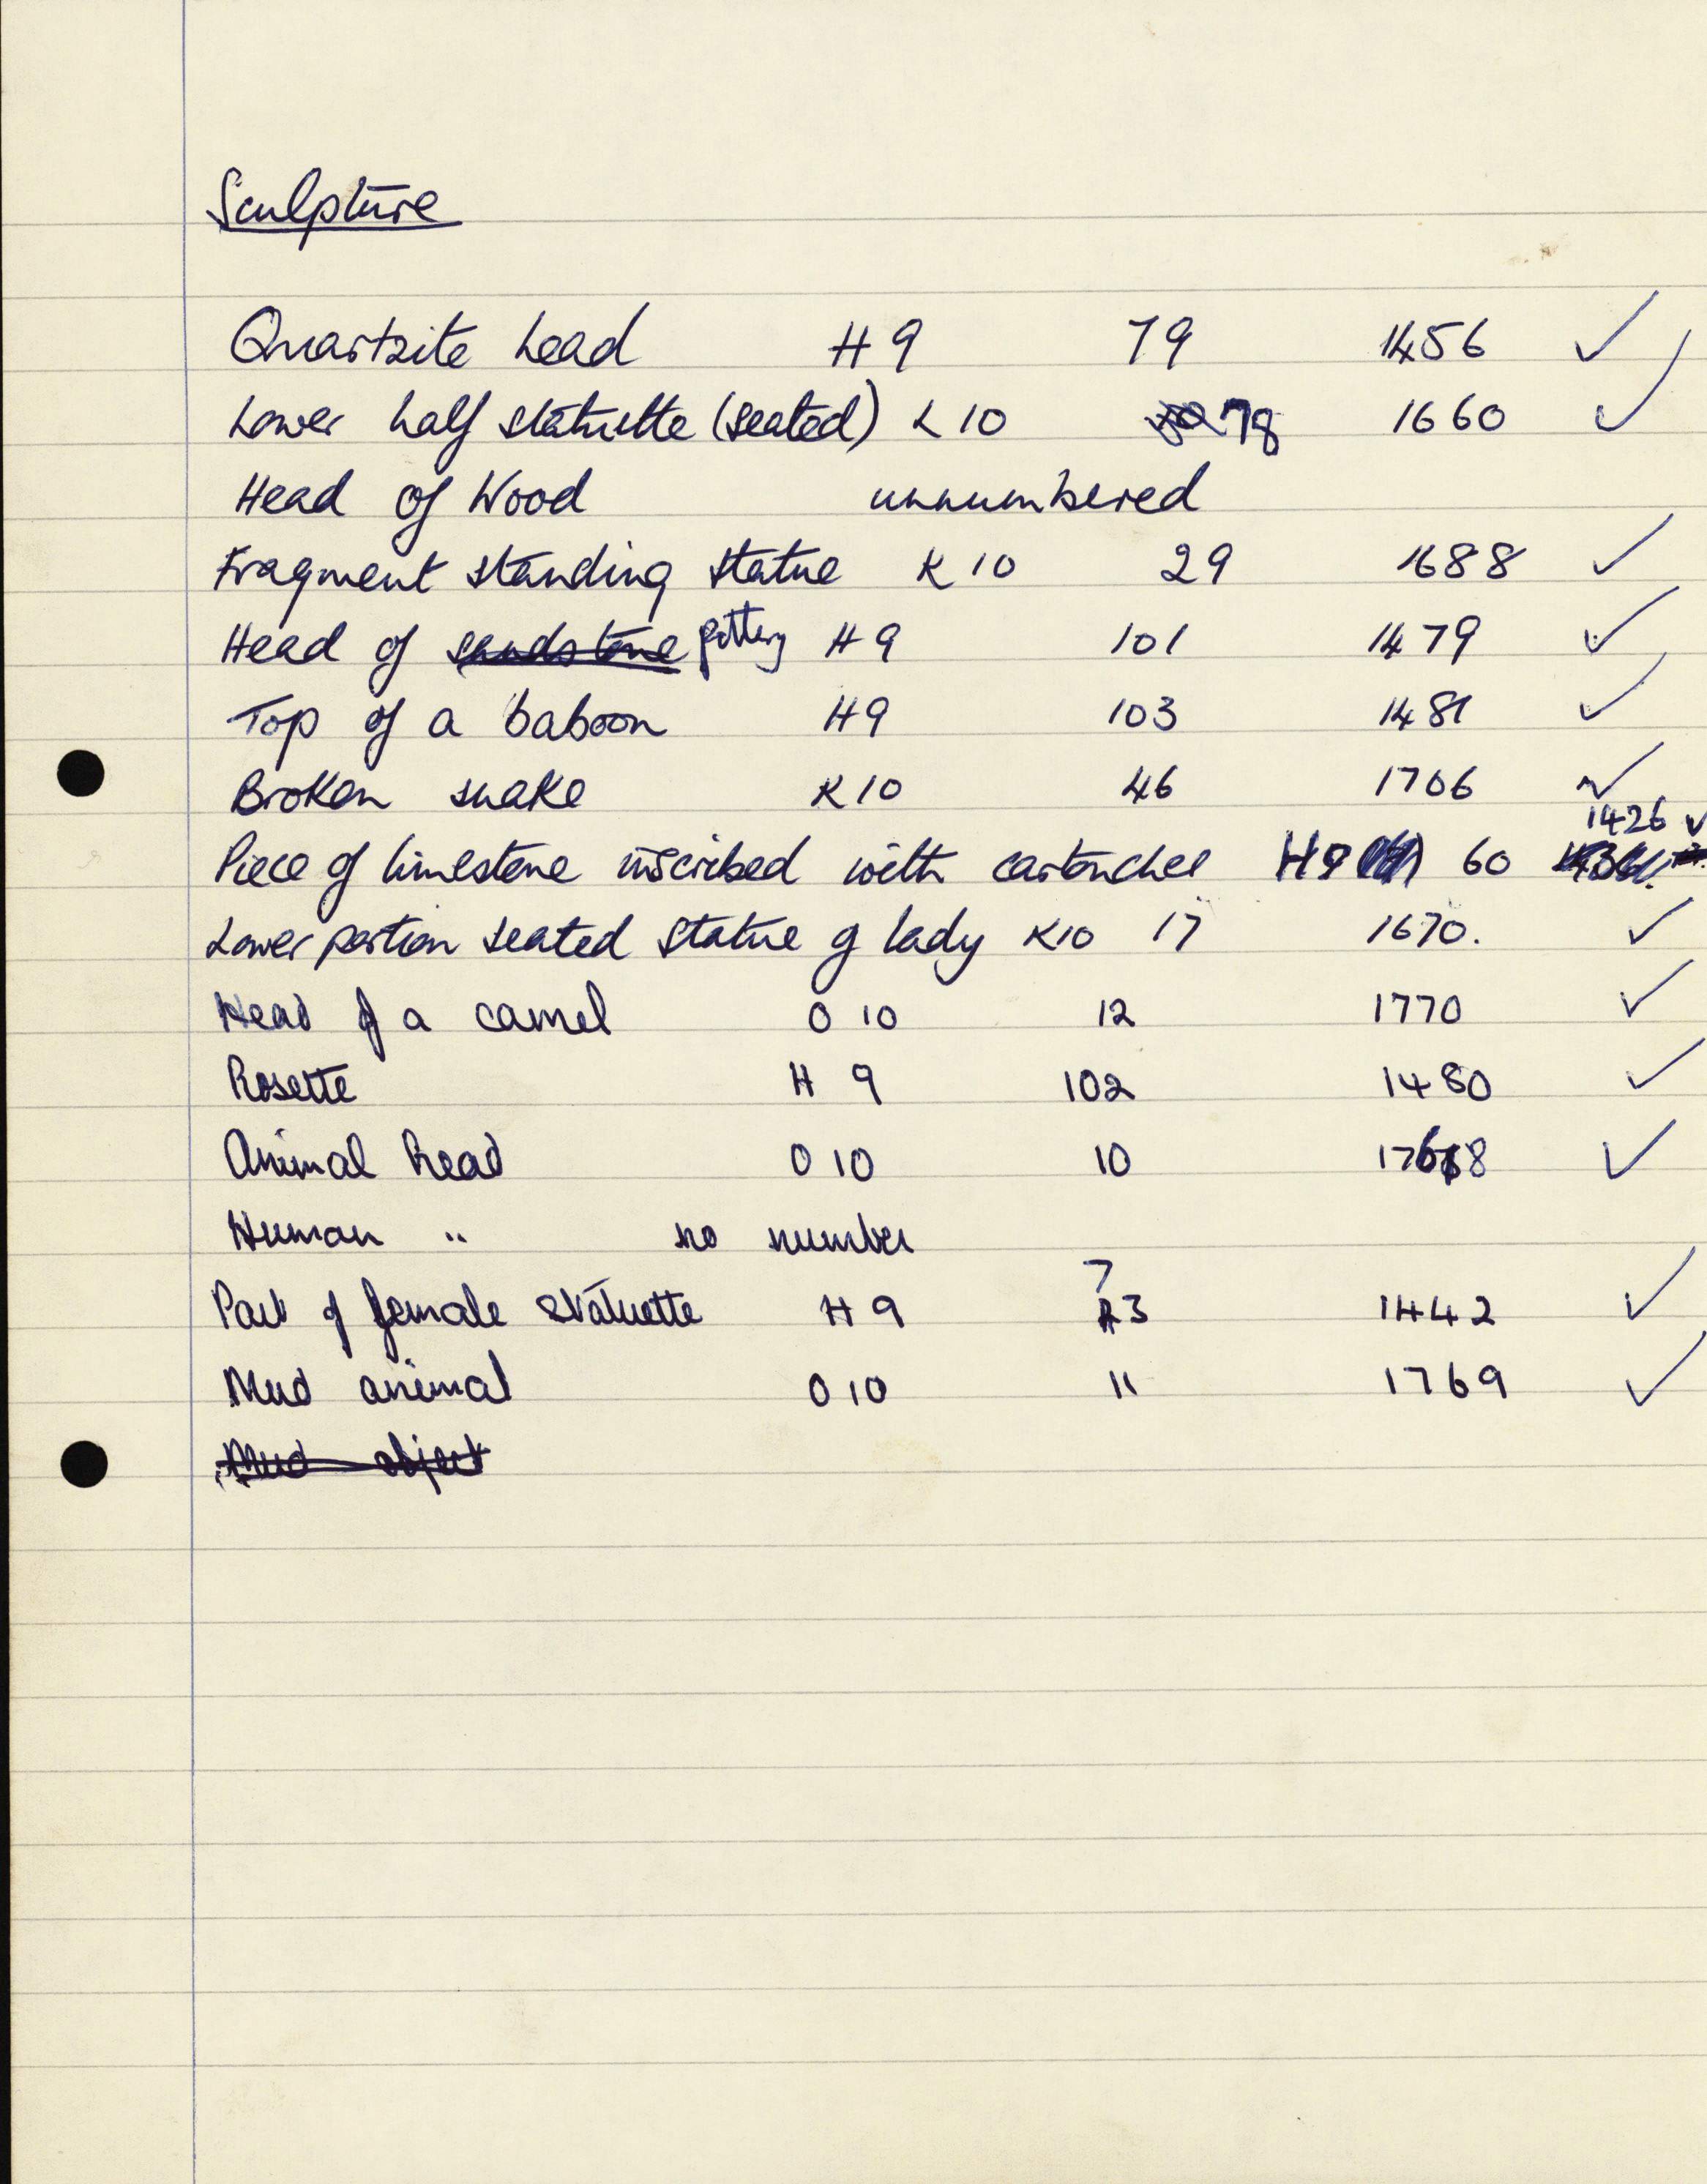 Sculpture
Quartzite head H 9 79 1456 ✓
Lower half statuette (seated) K 10 78 1660 ✓
Head of Wood unnumbered
Fragment standing statue K 10 29 1688 ✓
Head of sandstone pottery H 9 101 1479 ✓
Top of a baboon H 9 103 1481 ✓
Broken snake K 10 46 1706 ✓
Piece of limestone inscribed with cartouches H9 60 1426 ✓
Lower portion seated statue of lady K10 17 1670. ✓
Head of a camel O 10 12 1770 ✓
Rosette H 9 102 1480 ✓
Animal head O 10 10 1768 ✓
Human " no number
Part of female statuette H 9 73 1442 ✓
Mud animal O 10 11 1769 ✓
Mud object